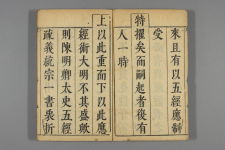 來且有以五經應制
受
特擢矣而嗣起者後有
人一時
上以此重而下以此應
經術大明不其盛歟
則陳明卿太史五經
疏義統宗一書裒折